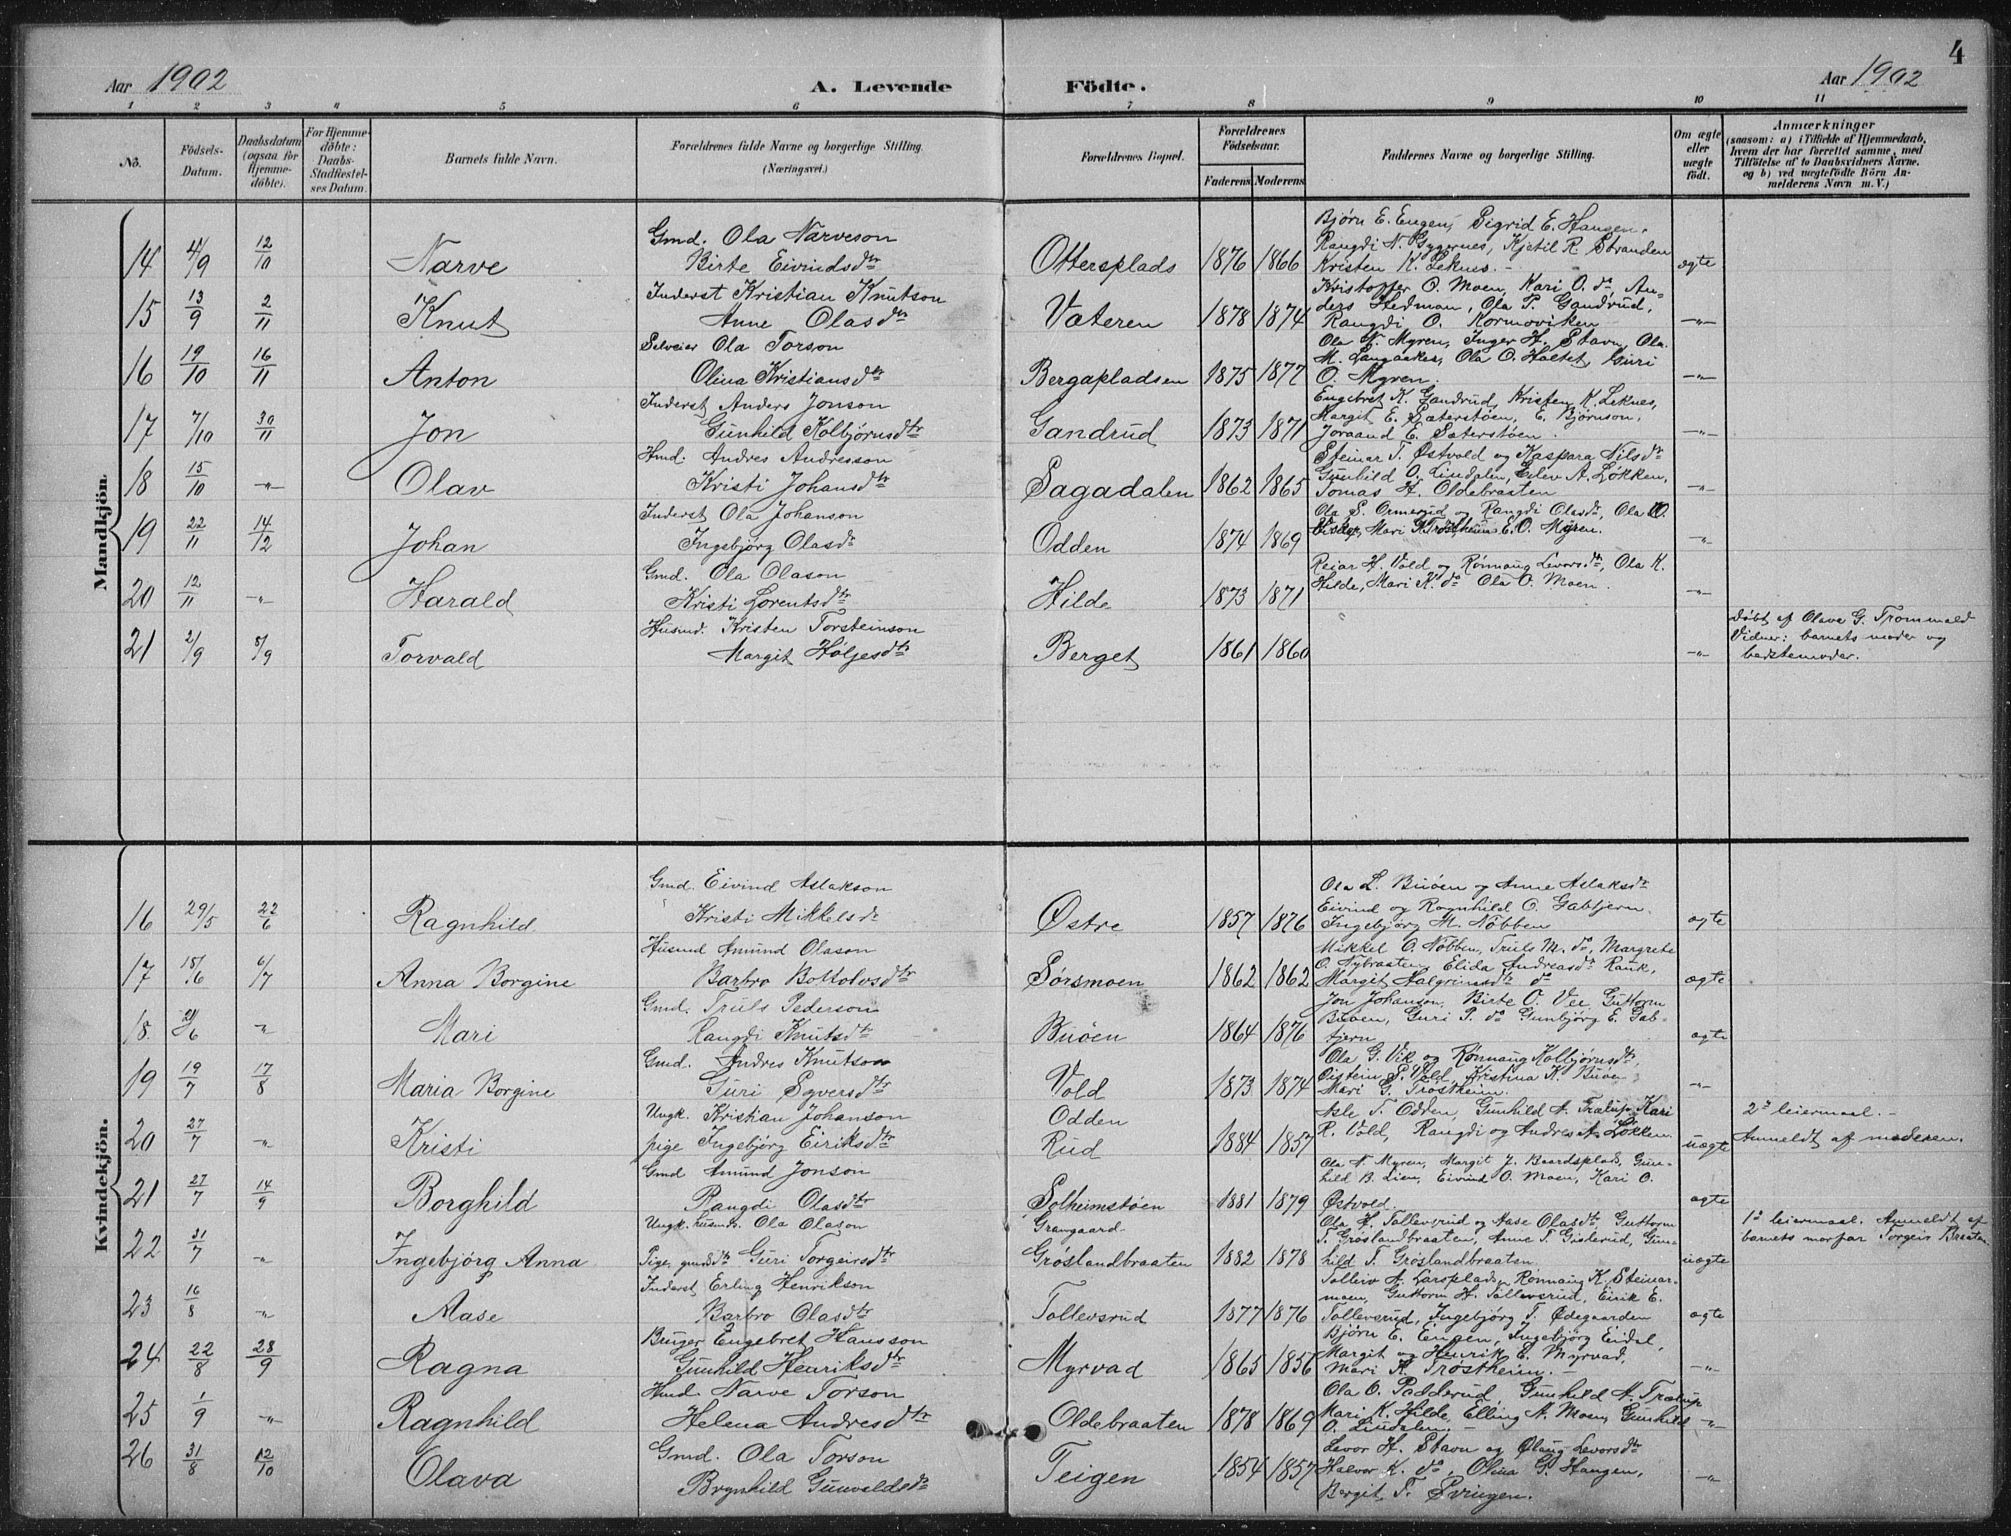 4
Aar 1902 A. Levende Födte. Aar 1902
1 2 3 4 5 6 7 8 9 10 11
Nö. Födsels-Datum. Daabsdatum (ogsaa for Hjemme-döbte). For Hjemme-döbte: Daabs-Stadfæstel-ses Datum. Barnets fulde Navn. Forældrenes fulde Navne og borgerlige Stilling. (Næringsvei.) Forældrenes Bopæl. Forældrenes Födselsaar. Faderens. Moderens. Faddernes Navne og borgerlige Stilling. Om ægte eller uægte födt. Anmærkninger (saasom: a) i Tilfælde af Hjemmedaab, hvem der har forrettet samme, med Tilföielse af to Daabsvidners Navne. og b) ved uægtefödte Börn An-melderens Navn m. V.)
Mandkjön.
14 4/9 12/10 Narve Gmd. Ola Narveson Birte Eivindsdtr Ottersplads 1876 1866 Bjørn E. Engen, Sigrid E. Haugen, Rangdi N. Gygernes, Kjetil R. Stranden Kristen K. Leknes. ægte
15 13/9 2/11 Knut Inderst Kristian Knutson Anne Olasdtr Væteren 1878 1874 Kristoffer O. Moen, Kari O. do, An-ders Hedman, Ola P. Gandrud, Rangdi O. Kormoviken -"-
16 19/10 16/11 Anton Selveier Ola Torson Olina Kristiansdtr Bergapladsen 1875 1877 Ola N. Myren, Inger H. Stavn, Ola M. Langaaker, Ola O. Haltet, Guri O. Myren. -"-
17 7/10 30/11 Jon Inderst Anders Jonson Gunhild Kolbjørnsdtr Gandrud 1873 1871 Engebret K. Gandrud, Kristen K. Leknes, Margit E. Sæterstøen, E. Bjørnson, Joraand E. Sæterstøen. -"-
18 15/10 -"- Olav Hmd. Andres Andresson Kristi Johansdtr Sagadalen 1862 1865 Steinar T. Østvold og Kaspara Nilsdr Gunhild O. Lindalen, Edev A. Løkken, Tomas H. Oldebraaten -"-
19 22/11 14/12 Johan Inderst Ola Johanson Ingebjørg Olasdr Odden 1874 1869 Ola S. Ormerud og Rangdi Olasdr, Ola O. Mari G. Trøstheim E. O. Myren. -"-
20 12/11 -"- Harald Gmd. Ola Olason Kristi Lorentsdtr Hilde 1873 1871 Reiar H. Vold og Rønnaug Levorsdtr, Ola K. Hilde, Mari K. do Ola O. Moen. -"-
21 2/9 5/9 Torvald Husmd. Kristen Torsteinson Margit Høljesdtr Berget 1861 1860 -"- døbt af Olava G. Trommald Vidner: barnets moder og bedstemoder.
Kvindekjön.
16 29/5 22/6 Ragnhild Gmd. Eivind Aslakson Kristi Mikkelsdr Østre 1857 1876 Ola L. Buøen og Anne Aslaksdr Eivind og Ragnhild O. Gabtjern Ingebjørg M. Nøbben ægte
17 15/6 6/7 Anna Borgine Husmd Amund Olason Barbro Bottolvsdtr Sørsmoen 1862 1862 Mikkel O. Nøbben, Truls M. do, Margrete O. Nybraaten, Elida Andreasdr Rauk, Margit Halgrimsdtr do ægte
18. 21/6 -"- Mari Gmd. Truls Pederson Rangdi Knutsdtr Buøen 1864 1876 Jon Johanson, Birte O. Vee, Guttorm Buøen, Guri P. do Gunbjørg E. Gab-tjern ægte
19 19/7 17/8 Maria Borgine Gmd. Andres Knutson Guri Syversdtr Vold 1873 1874 Ola G. Vik og Rønnaug Kolbjørnsdtr, Øistein S. Vold, Kristina K. Buøen Mari G. Trøstheim. -"-
20 27/7 -"- Kristi Ungk. Kristian Johanson pige Ingebjørg Eiriksdtr Odden Rud 1884 1857 Asle T. Odden, Gunhild A. Trætup, Kari R. Vold, Rangdi og Andres A. Løkken uægte 2d leiermaal. - Anmeldt af moderen.
21 27/7 14/9 Borghild Gmd Amund Jonson Rangdi Olasdtr Solheimstøen 1881 1879 Ola N. Myren, Margit J. Baardsplads, Gun-hild B. Lien, Eivind O. Moen, Kari O. Østvold. ægte
22 31/7 -"- Ingebjørg Anna Ungk. husmds. Ola Olason Pige, gmdsdtr Guri Torgeirsdtr Gravgaard Grøslandbraaten 1882 1878 Ola H. Tollevsrud og Aase Olasdtr, Guttorm T. Grøslandbraaten, Anne T. Gislerud, Gun-hild T. Grøslandbraaten. uægte 1d leiermaal. Anmeldt af barnets morfar Torgeir Braaten
23 16/8 -"- Aase Inderst Erling Henrikson Barbro Olasdtr Tollevsrud 1877 1876 Tolleiv A. Larsplads, Rønnaug K. Steinar-moen, Guttorm H. Tollevsrud, Eirik E. Tollevsrud, Ingebjørg T. Ødegaarden ægte
24 22/8 28/9 Ragna Bruger Engebret Hansson Gunhild Henriksdtr Myrvad 1865 1856 Bjørn E. Engen, Ingebjørg Eidal, Margit og Henrik E. Myrvad, Mari K. Trøstheim. - -"-
25 1/9 -"- Ragnhild Hmd. Narve Torson Helena Andresdtr Oldebraaten 1878 1869 Ola O. Padderud, Gunhild A. Trætup Mari K. Hilde, Elling A. Moen, Gunhild O. Lindalen. - -"-
26 31/8 12/10 Olava Gmd. Ola Torson Brynhild Gunvaldsdr Teigen 1854 1857 Levor H. Stavn og Øllaug Levorsdtr Halvor K. do, Olina G. Haugen, Bergit T. Svingen. -"-